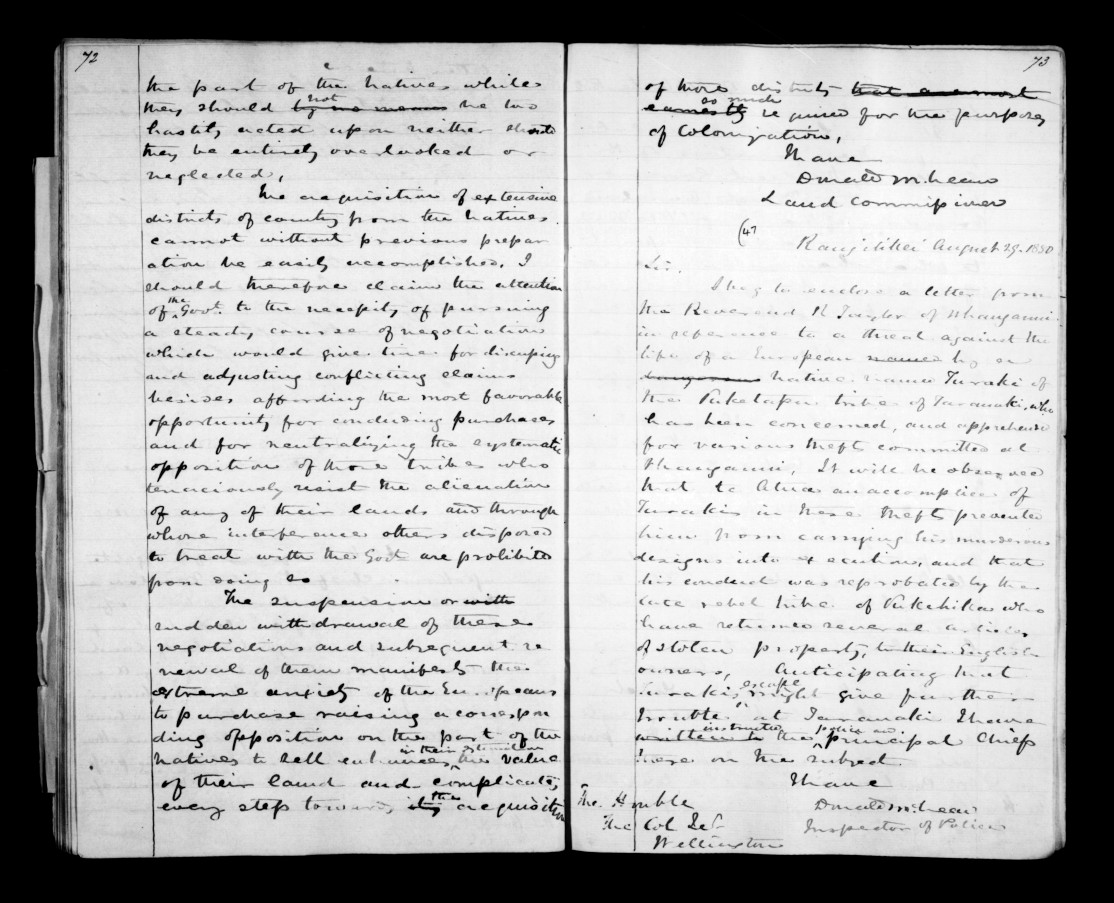 72
the part of the Natives whilst
they should by no means not be too
hastily acted upon neither should
they be entirely overlooked or
neglected,
The acquisition of extensive
districts of country from the Natives
cannot without previous prepar
ation be easily accomplished. I
should therefore claim the attention
of the Govt. to the necessity of pursuing
a steady course of negotiation
which would give time for discussing
and adjusting conflicting claims
besides affording the most favorable
opportunity for concluding purchases
and for neutralizing the systematic
opposition of those tribes who
tenaciously resist the alienation
of any of their lands and through
whose interference others disposed
to treat with the Govt are prohibited
from doing so
The suspension or with
sudden withdrawal of these
negotiations and subsequent re
newal of them manifests the
extreme anxiety of the Europeans
to purchase raising a correspon
ding opposition on the part of the
Natives to sell enhances in their estimation the value
of their land and complicates
every step towards the acquisition
73
of those districts that are most
earnestly as much required for the purposes
of Colonization,
I have
Donald McLean
Land Commissioner
(47
Rangitikei August 29. 1850
Sir,
I beg to enclose a letter from
the Reverend R Taylor of Whanganui
in reference to a threat against the
life of a European named by a
dangerous native name Turaki of
the Puketapu tribe of Taranaki, who
has been concerned, and apprehended
for various thefts committed at
Whanganui, It will be observed
that te Atua an accomplice of
Turakis in these thefts prevented
him from carrying his murderous
designs into execution, and that
his conduct was reprobated by the
late rebel tribe of Pukehika who
have returned several articles
of stolen property, to their English
owners, Anticipating that
Turaki, escape might give further
trouble at Taranaki I have
written to instructed the police and principal Chiefs
there on the subject
I have
Donald McLean
Inspector of Police
The Honble
The Col Secy
Wellington